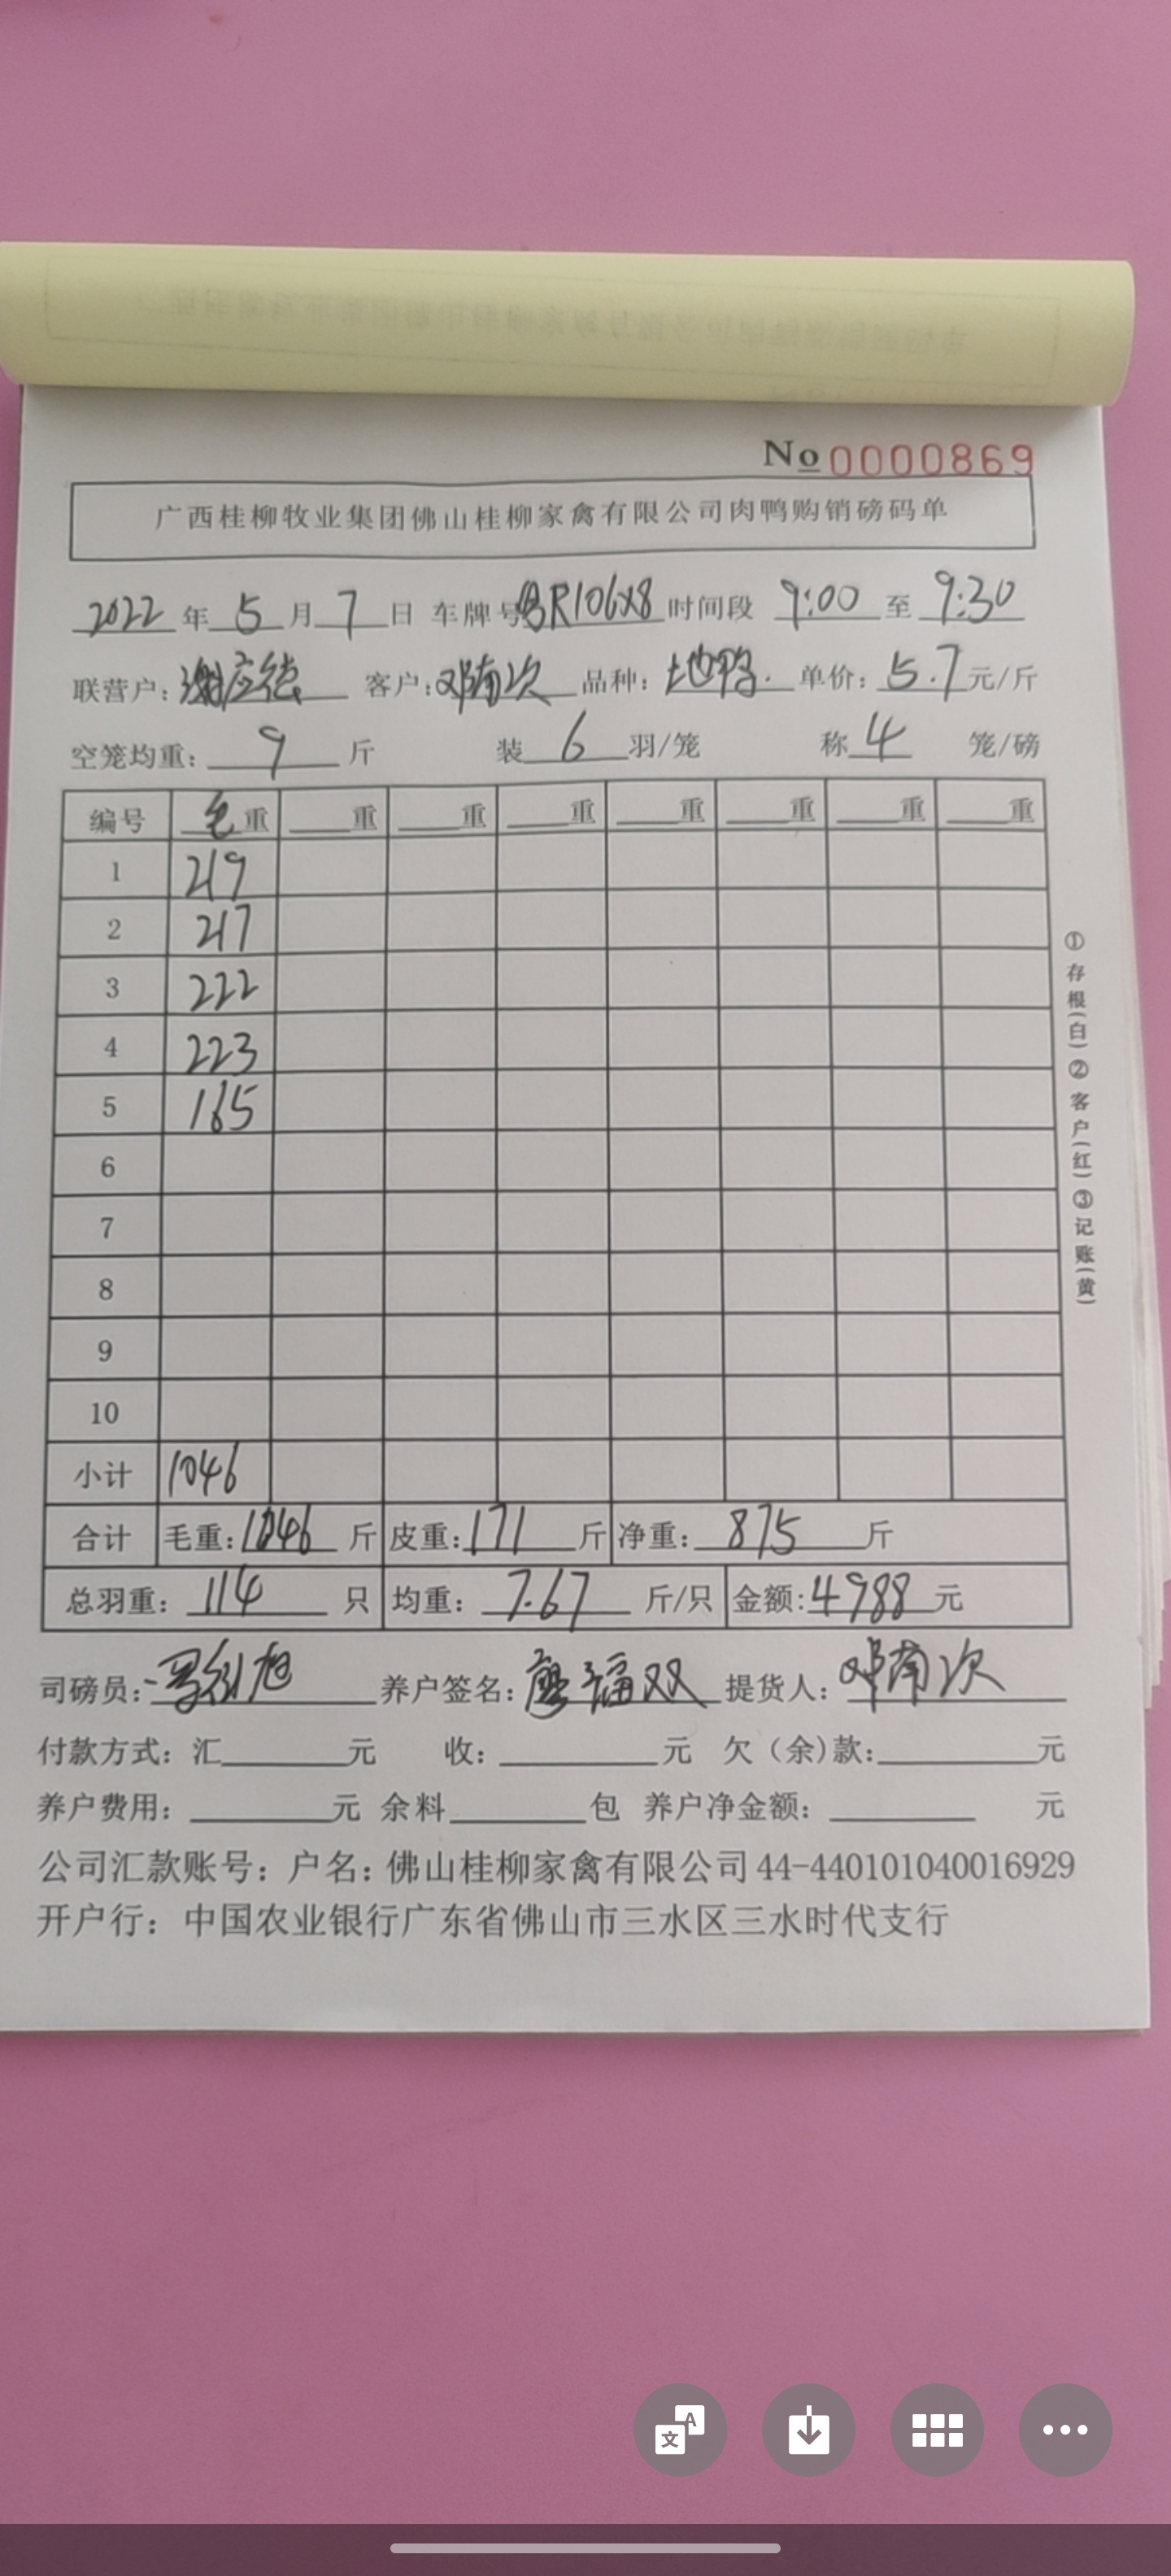 No 0000869
广西桂柳牧业集团佛山桂柳家禽有限公司肉鸭购销磅码单
2022年5月7日 车牌号粤R106X8 时间段 9:00至9:30
联营户:谢应德 客户:邓南次 品种:地鸭. 单价:5.7元/斤
空笼均重:9斤 装6羽/笼 称4笼/磅
编号 毛重 重 重 重 重 重 重 重
1 219
2 217
3 222
4 223
5 165
6
7
8
9
10
小计 1046
合计 毛重:1046斤 皮重:171斤 净重:875斤
总羽重:114只 均重:7.67斤/只 金额:4988元
司磅员: 养户签名:廖福双 提货人:邓南次
付款方式:汇元 收:元 欠(余)款:元
养户费用:元 余料包 养户净金额:元
公司汇款账号:户名:佛山桂柳家禽有限公司44-440101040016929
开户行:中国农业银行广东省佛山市三水区三水时代支行
①存根(白)②客户(红)③记账(黄)